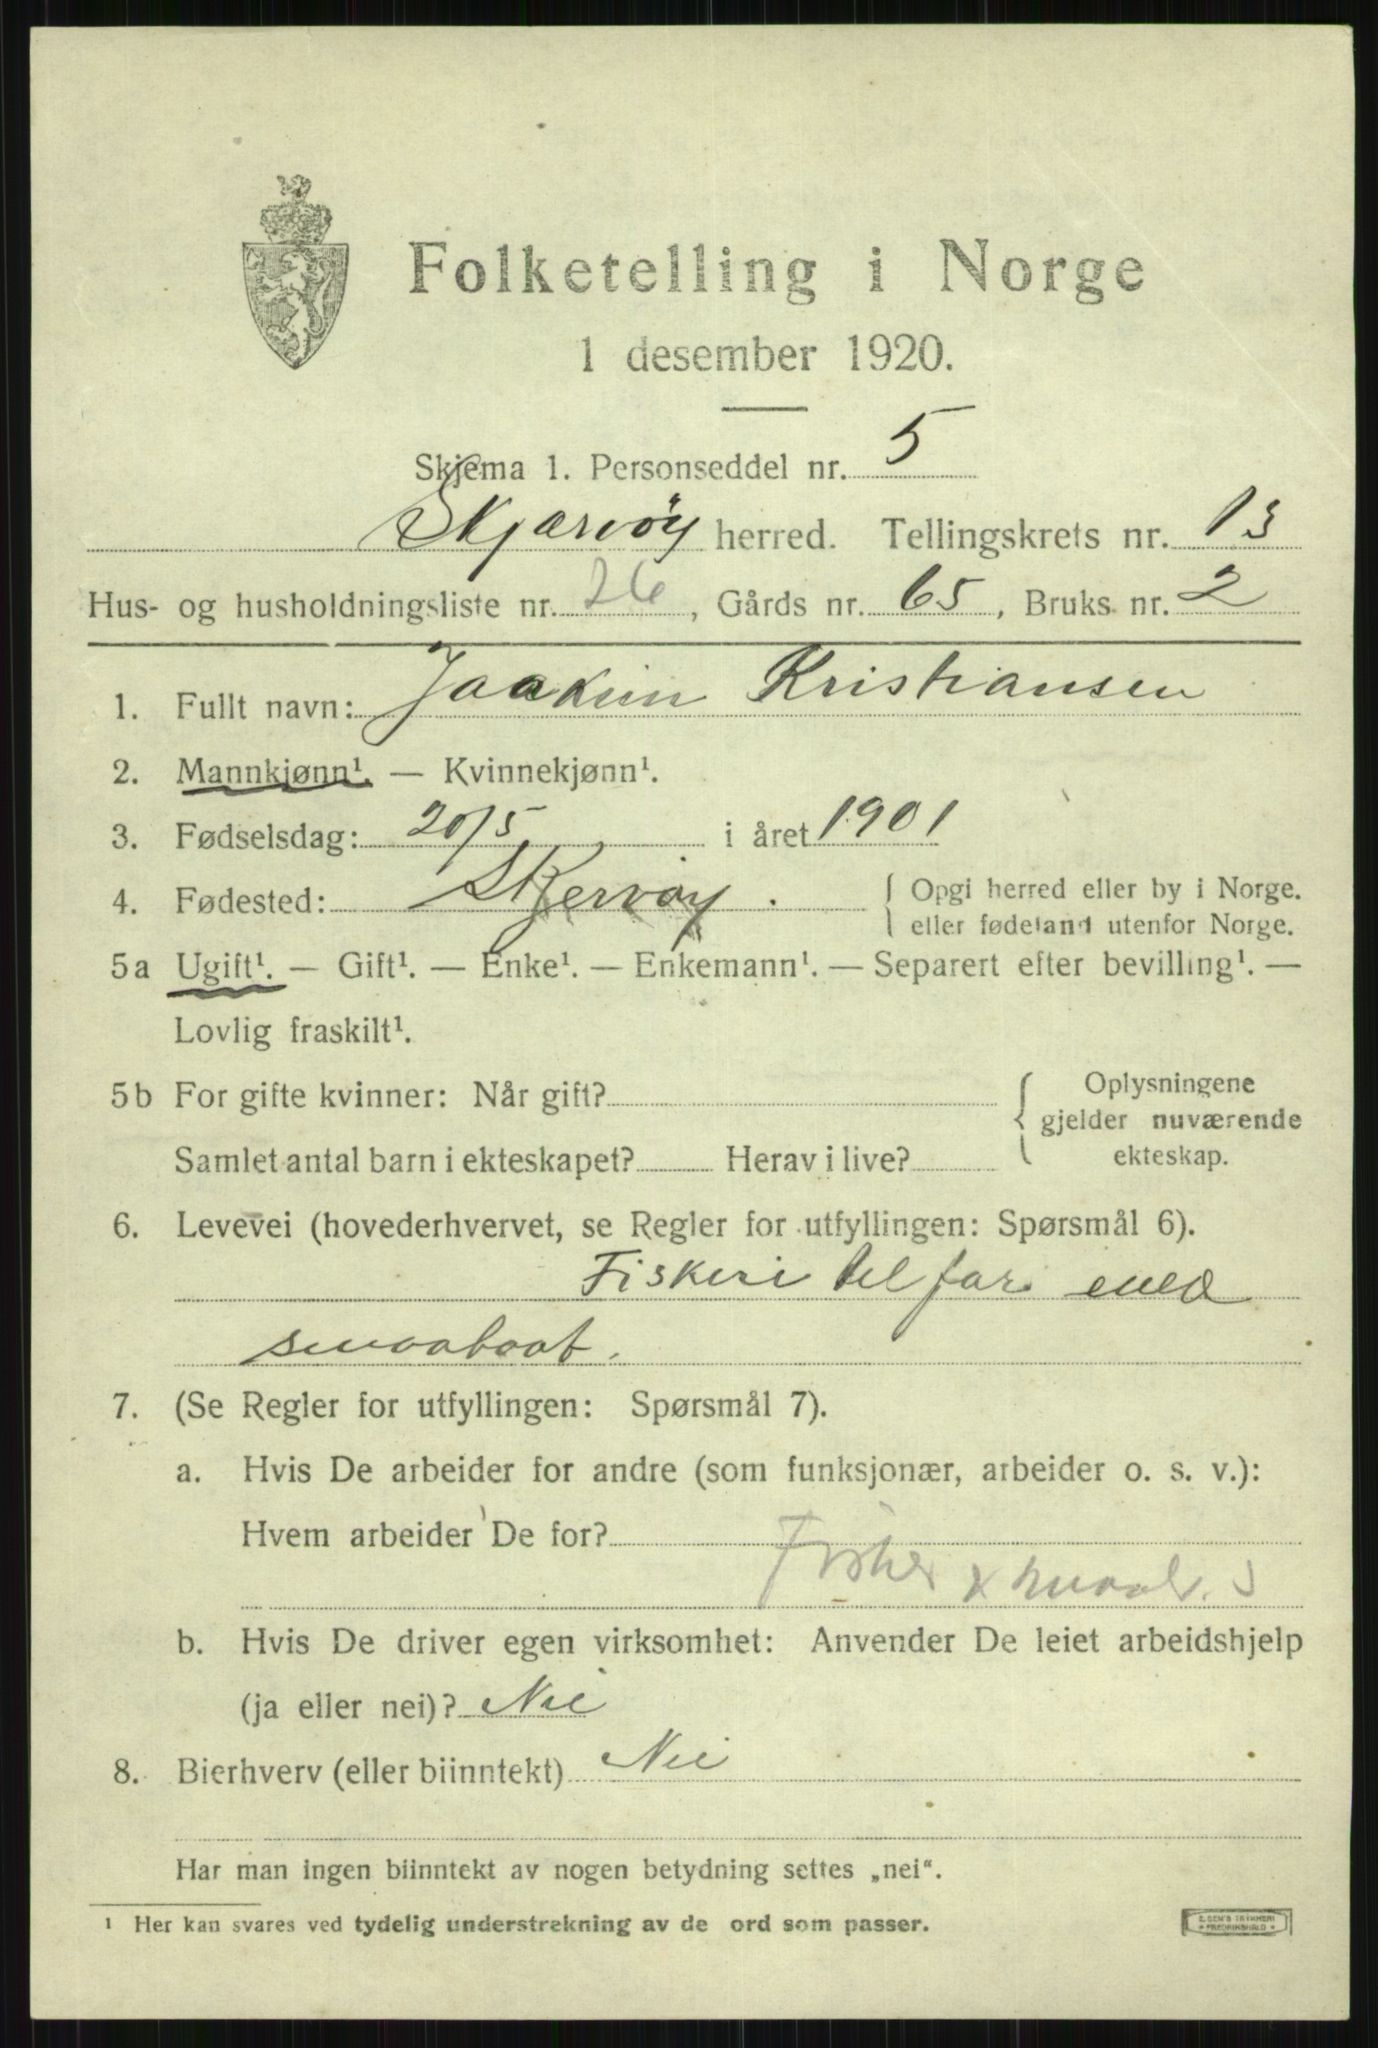 Folketelling i Norge
1 desember 1920.
Skjema 1. Personseddel nr. 5
Skjærvöy herred. Tellingskrets nr. 13
Hus- og husholdningsliste nr. 26, Gårds nr. 65, Bruks nr. 2
1. Fullt navn: Joakim Kristiansen
2. Mannkjønn¹. — Kvinnekjønn¹.
3. Fødselsdag: 20/5 i året 1901
4. Fødested: Skjervöy. { Opgi herred eller by i Norge.
eller fødeland utenfor Norge.
5a Ugift¹. — Gift¹. — Enke¹. — Enkemann¹. — Separert efter bevilling¹. —
Lovlig fraskilt¹.
5b For gifte kvinner: Når gift? { Oplysningene
gjelder nuværende
Samlet antal barn i ekteskapet? Herav i live? ekteskap.
6. Levevei (hovederhvervet, se Regler for utfyllingen: Spørsmål 6).
Fiskeri til far med
smaabaat.
7. (Se Regler for utfyllingen: Spørsmål 7).
a. Hvis De arbeider for andre (som funksjonær, arbeider o. s. v.):
Hvem arbeider De for?
Fisker x
b. Hvis De driver egen virksomhet: Anvender De leiet arbeidshjelp
(ja eller nei)? Nei
8. Bierhverv (eller biinntekt) Nei
Har man ingen biinntekt av nogen betydning settes „nei".
¹ Her kan svares ved tydelig understrekning av de ord som passer.
E. SEM'S TRYKKERI
* FREDRIKSHALD *